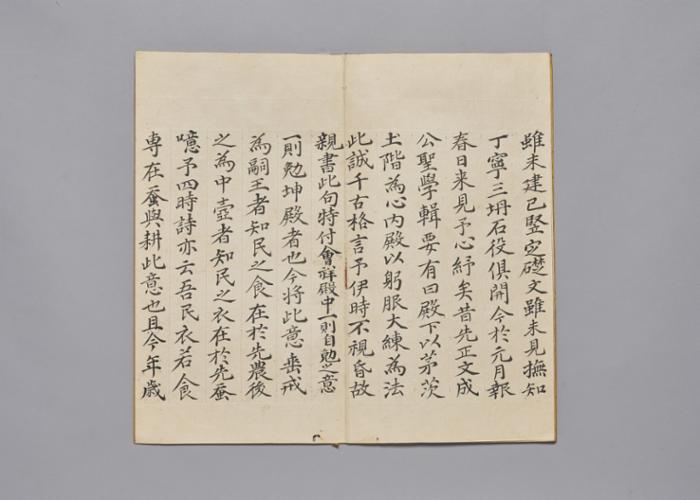 雖未建已竪定礎文雖未見撫知
丁寧三冊石役俱開今於元月報
春日来見予心紓矣昔先正文成
公聖學輯要有曰殿下以茅茨
土階為心內殿以躬服大練為法
此誠千古格言予伊時不視昏故
親書此句特付會祥殿中一則自勉之意
一則勉坤殿者也今將此意垂戒
為嗣王者知民之食在於先農後
之為中壼者知民之衣在於先蚕
噫予四時詩亦云吾民衣若食
專在蚕與耕此意也且今年歲